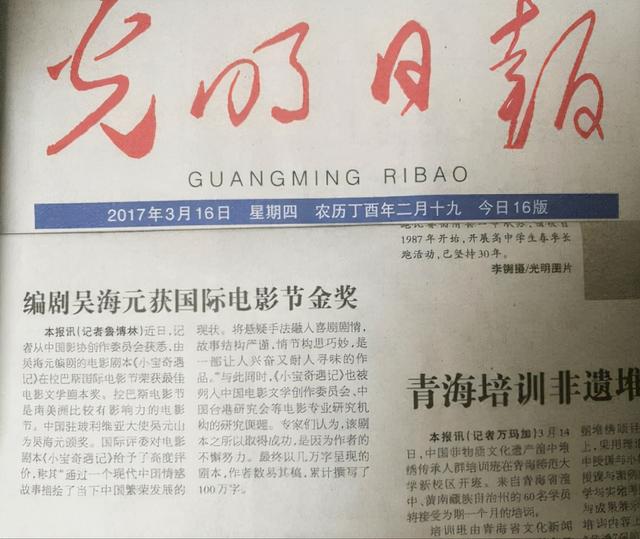 光明日报
GUANGMING RIBAO
2017年3月16日 星期四 农历丁酉年二月十九 今日16版
1987年开始,开展高中学生春季长
跑活动,已坚持30年。
李锎摄/光明图片
编剧吴海元获国际电影节金奖
本报讯(记者鲁博林)近日,记
者从中国影协创作委员会获悉,由
吴海元编剧的电影剧本《小宝奇遇
记》在拉巴斯国际电影节荣获最佳
电影文学剧本奖。拉巴斯电影节
是南美洲比较有影响力的电影
节。中国驻玻利维亚大使吴元山
为吴海元颁奖。国际评委对电影
剧本《小宝奇遇记》给予了高度评
价,称其“通过一个现代中国情感
故事描绘了当下中国繁荣发展的
现状。将悬疑手法融入喜剧剧情,
故事结构严谨,情节构思巧妙,是
一部让人兴奋又耐人寻味的作
品。”与此同时,《小宝奇遇记》也被
列入中国电影文学创作委员会、中
国台港研究会等电影专业研究机
构的研究课题。专家们认为,该剧
本之所以取得成功,是因为作者的
不懈努力。最终以几万字呈现的
剧本,作者数易其稿,累计撰写了
100万字。
青海培训非遗堆
本报讯(记者万玛加)3月14
日,中国非物质文化遗产湟中堆
绣传承人群培训班在青海师范大
学新校区开班。来自青海省湟
中、黄南藏族自治州的60名学员
将接受为期一个月的培训。
培训班由青海省文化新闻